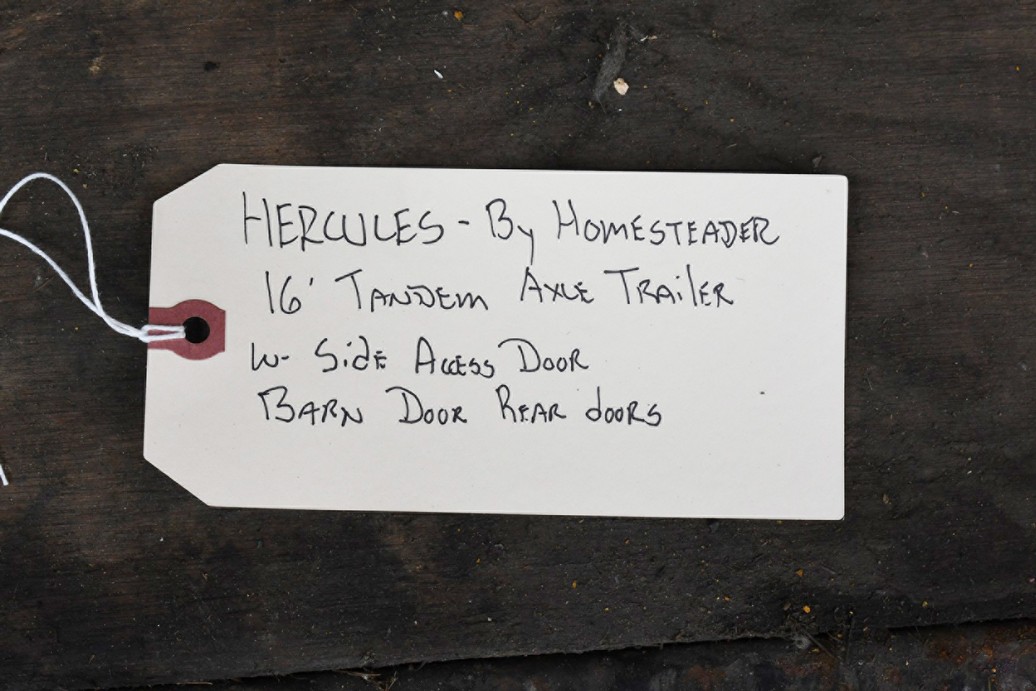 HERCULES - By HOMESTEADER
16' TANDEM AXLE TRAILER
W- SidE ACCESS DOOR
BARN DOOR REAR dOORS